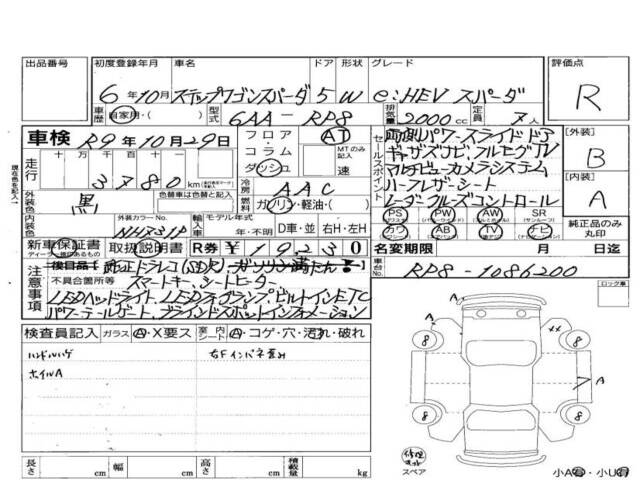 出品番号 初度登録年月 車名 ドア 形状 グレード 評価点
6年10月 ステップワゴンスパーダ 5 W e:HEV スパーダ R
車歴 自家用・( ) 型式 6AA-RP8 排気量 2000cc 定員 7人
車検 R9年10月29日 フロア・コラム・ダッシュ AT MTのみ記入 速
セールスポイント 両側パワースライドドア
ギャザズナビ、フルセグTV
マルチビューカメラシステム
ハーフレザーシート
レーダークルーズコントロール
[外装] B
[内装] A
現在色を記入
走行 十万 万 千 百 十 3780km
冷房 AAC
外装色 黒 色替車は色替と記入 燃料 ガソリン・軽油・( )
内装色 外装カラーNo. NH731P 輸入車 モデル年式 年・不明 D車・並 右H・左H
PS PW AW SR (サンルーフ)
カワ AB TV ナビ
純正品のみ丸印
新車保証書 取扱説明書 R券 ¥19230
名変期限 月 日迄
車台No. RP8-1086200
注意事項 不具合箇所等
スマートキー、シートヒーター
LEDヘッドライト、LEDフォグランプ、ビルトインETC
パワーテールゲート、ブラインドスポットインフォメーション
ロック車
検査員記入 ガラス A・X要ス 室内シート A・コゲ・穴・汚れ・破れ
ハンドルハゲ 右Fインパネ歪み
ホイルA
A A 8 8 XX A 8 8
修理キット
スペア
長さ cm 幅 cm 高さ cm 積載量 kg
小A有・小U有